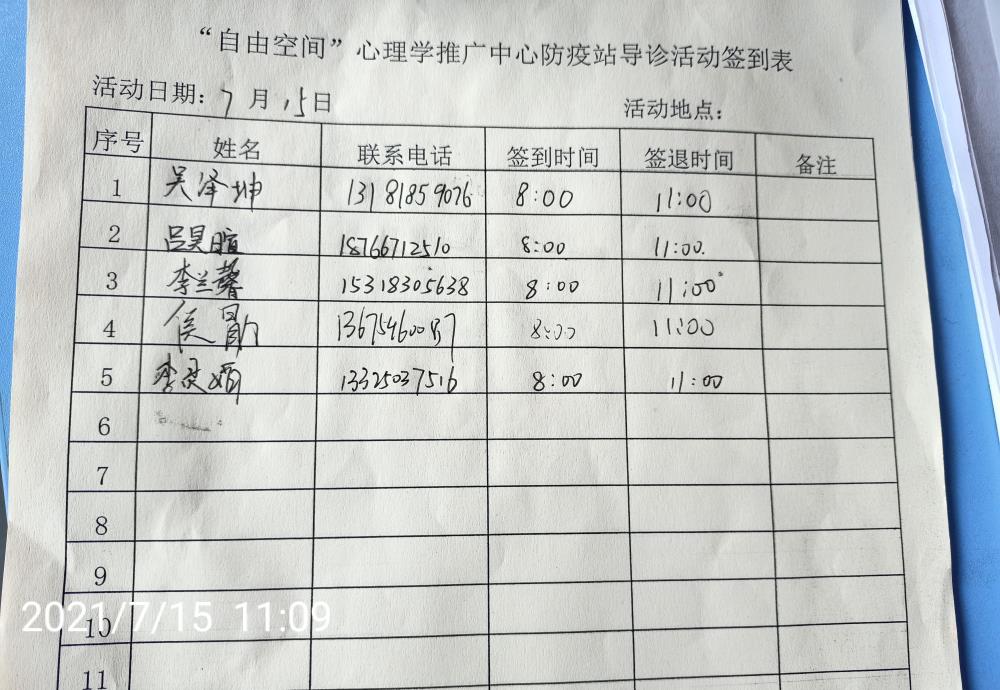 “自由空间”心理学推广中心防疫站导诊活动签到表
活动日期：7月15日 活动地点：
序号 姓名 联系电话 签到时间 签退时间 备注
1 吴泽坤 13181859076 8:00 11:00
2 吕昊暄 18766712510 8:00 11:00.
3 李兰馨 15318305638 8:00 11:00
4 侯 13675460087 8:00 11:00
5 李 13325037516 8:00 11:00
6
7
8
9
10
11
2021/7/15 11:09